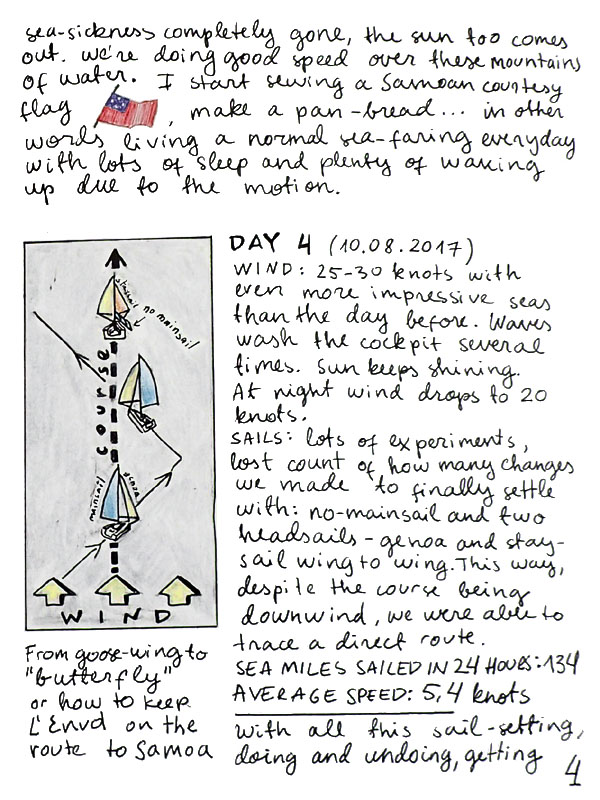 sea-sickness completely gone, the sun too comes
out. We're doing good speed over these mountains
of water. I start sewing a Samoan courtesy
flag , make a pan-bread... in other
words living a normal sea-faring everyday
with lots of sleep and plenty of waking
up due to the motion.
staysail
no mainsail
course
mainsail
genoa
WIND
From goose-wing to
"butterfly"
or how to keep
L'Envd on the
route to Samoa
DAY 4 (10.08.2017)
WIND: 25-30 knots with
even more impressive seas
than the day before. Waves
wash the cockpit several
times. Sun keeps shining.
At night wind drops to 20
knots.
SAILS: lots of experiments,
lost count of how many changes
we made to finally settle
with: no-mainsail and two
headsails - genoa and stay-
sail wing to wing. This way,
despite the course being
downwind, we were able to
trace a direct route.
SEA MILES SAILED IN 24 HOURS: 134
AVERAGE SPEED: 5,4 knots
With all this sail-setting,
doing and undoing, getting
4